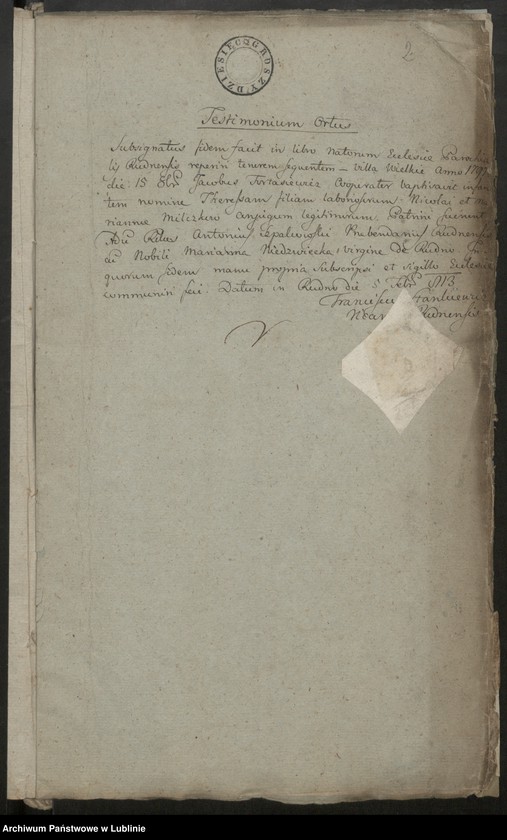 2
DZIESIĘC GROSZY
Testimonium Ortus
Subsignatus fidem facit in libro Natorum Ecclesiæ Parochia
lis Rudnensis reperiri tenorem sequentem – Villa Wielkie Anno
die: 15 8bris Jacobus Cooperator baptisavit infan
tem nomine Theresam filiam Laboriosorum: Nicolai et Ma
riannæ Milczków Conjugum legitimorum. Patrini fuerunt
Adm Rdus Antonius Prebendarius Rudnensis
cu Nobili Marianna Niedzwiecka virgine De Rudno. In
quorum fidem manu propria subscripsi et sigillo Ecclesiæ
communivi feci. Datum in Rudno die 5 813
Franciscus
Rudnensis
Archiwum Państwowe w Lublinie